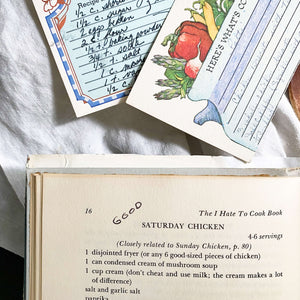 Recipe
1½ c. sugar
2 eggs
½ t. baking powder
¾ t. soda
½ t. salt
HERE'S WHAT'S CO
16
Good
The I Hate To Cook Book
SATURDAY CHICKEN
4-6 servings
(Closely related to Sunday Chicken, p. 80)
1 disjointed fryer (or any 6 good-sized pieces of chicken)
1 can condensed cream of mushroom soup
1 cup cream (don't cheat and use milk; the cream makes a
lot of difference)
salt and garlic salt
paprika